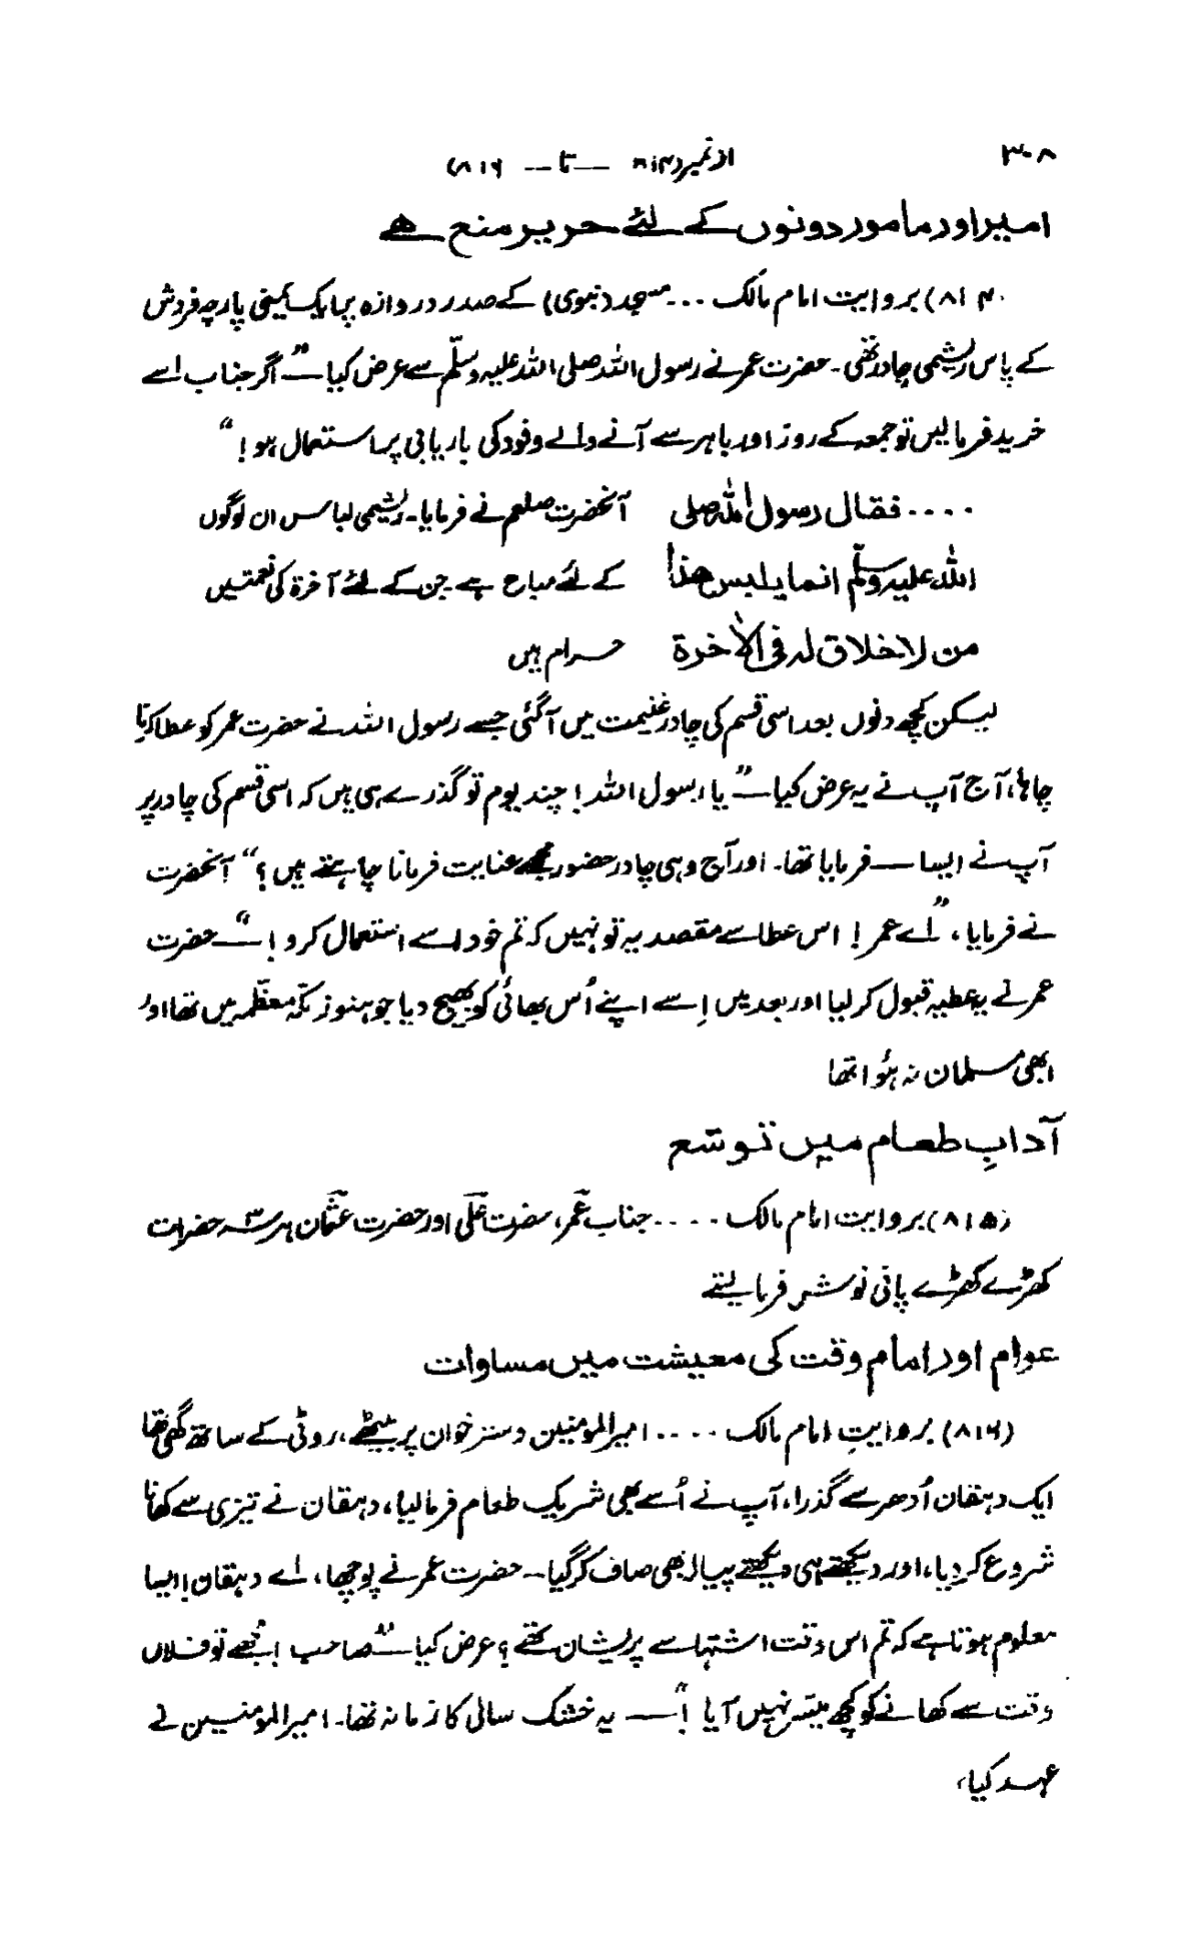 ۳۰۸
از نمبر (۸۱۴ — تا — ۸۱۶)
امیر اور مامور دونوں کے لئے حریر منع ہے
(۸۱۴) بروایت امام مالک ... مسجد (نبوی) کے صدر دروازہ پر ایک یمنی پارچہ فروش
کے پاس ریشمی چادر تھی۔ حضرت عمر نے رسول اللہ صلی اللہ علیہ وسلّم سے عرض کیا — "اگر جناب اسے
خرید فرما لیں تو جمعہ کے روز اور باہر سے آنے والے وفود کی باریابی پر استعمال ہو!"
.... فقال رسول اللہ صلی آنحضرت صلعم نے فرمایا۔ ریشمی لباس ان لوگوں
اللہ علیہ وسلّم انما یلبس ھذا کے لئے مباح ہے جن کے لئے آخرۃ کی نعمتیں
من لا خلاق لہ فی الاٰخرۃ حرام ہیں
لیکن کچھ دنوں بعد اسی قسم کی چادر غنیمت میں آگئی جسے رسول اللہ نے حضرت عمر کو عطا کرنا
چاہا، آج آپ نے یہ عرض کیا — "یا رسول اللہ! چند یوم تو گذرے ہی ہیں کہ اسی قسم کی چادر پر
آپ نے ایسا — فرمایا تھا۔ اور آج وہی چادر حضور مجھے عنایت فرمانا چاہتے ہیں؟" آنحضرت
نے فرمایا، "اے عمر! اس عطا سے مقصد یہ تو نہیں کہ تم خود اسے استعمال کرو!" — حضرت
عمر نے یہ عطیہ قبول کر لیا اور بعد میں اِسے اپنے اُس بھائی کو بھیج دیا جو ہنوز مکّہ معظّمہ میں تھا اور
ابھی مسلمان نہ ہُوا تھا
آدابِ طعام میں توسّع
(۸۱۵) بروایت امام مالک .... جناب عمرؓ، حضرت علیؓ اور حضرت عثمانؓ ہر سہ حضرات
کھڑے کھڑے پانی نوش فرما لیتے
عوام اور امام وقت کی معیشت میں مساوات
(۸۱۶) بروایتِ امام مالک .... امیر المؤمنین دسترخوان پر بیٹھے، روٹی کے ساتھ گھی تھا
ایک دہقان اُدھر سے گذرا، آپ نے اُسے بھی شریک طعام فرما لیا، دہقان نے تیزی سے کھانا
شروع کر دیا، اور دیکھتے ہی دیکھتے پیالہ بھی صاف کر گیا۔ حضرت عمر نے پوچھا، اے دہقان! ایسا
معلوم ہوتا ہے کہ تم اس وقت اشتہا سے پریشان تھے؟ عرض کیا — "صاحب! مجھے تو فلاں
وقت سے کھانے کو کچھ میسّر نہیں آیا!" — یہ خشک سالی کا زمانہ تھا۔ امیر المؤمنین نے
عہد کیا،